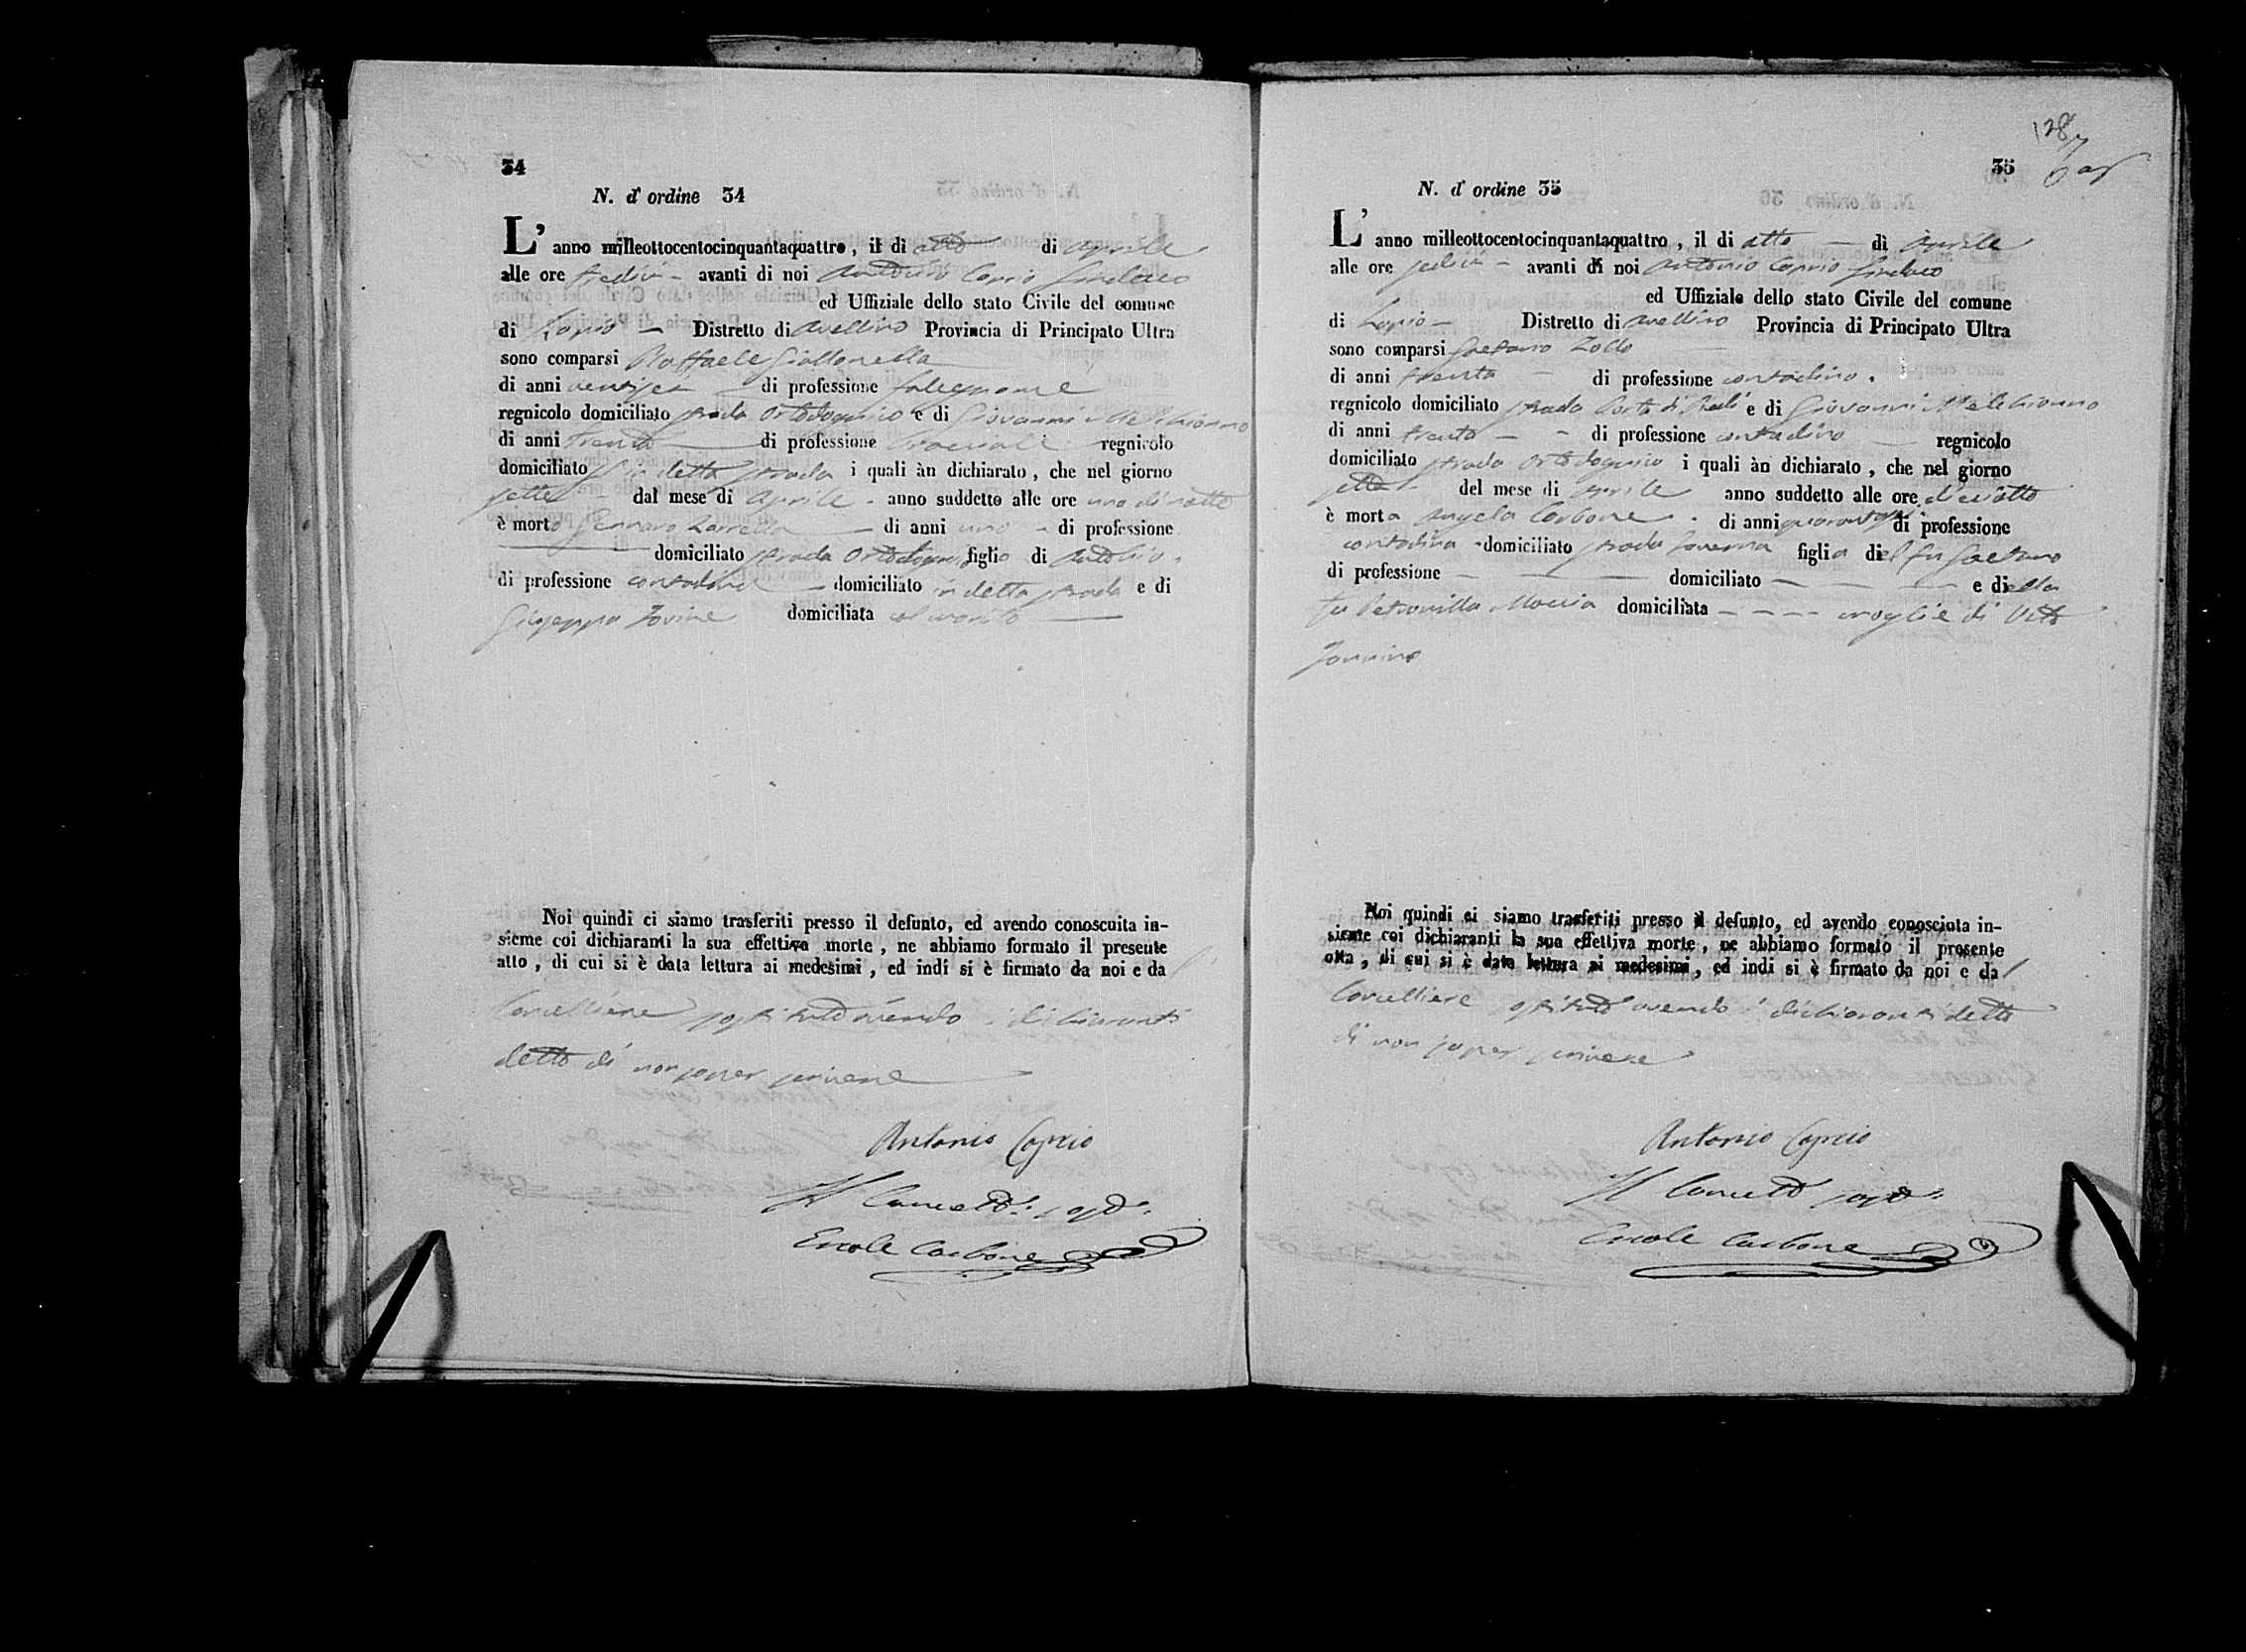 34
N. d' ordine 34
L' anno milleottocentocinquantaquattro, il dì otto di Aprile
alle ore tredici avanti di noi Antonio Caprio Sindaco
ed Uffiziale dello stato Civile del comune
di Lapio Distretto di Avellino Provincia di Principato Ultra
sono comparsi Raffaele Giallonella
di anni ventisei di professione falegname
regnicolo domiciliato strada e di Giovanni Melchionno
di anni trenta di professione regnicolo
domiciliato in detta strada i quali àn dichiarato, che nel giorno
sette dal mese di Aprile anno suddetto alle ore
è morto Gennaro Zarrella di anni uno di professione
domiciliato strada figlio di
di professione contadino domiciliato in detta strada e di
Giuseppa Iovine domiciliata col marito
Noi quindi ci siamo trasferiti presso il defunto, ed avendo conoscuita in-
sieme coi dichiaranti la sua effettiva morte, ne abbiamo formato il presente
atto, di cui si è data lettura ai medesimi, ed indi si è firmato da noi e dal
Cancelliere sostituto avendo i dichiaranti
detto di non saper scrivere
Antonio Caprio
Il Cancell. sost.
Ercole Carbone
128
35
N. d' ordine 35
L' anno milleottocentocinquantaquattro, il di otto di Aprile
alle ore sedici avanti di noi Antonio Caprio Sindaco
ed Uffiziale dello stato Civile del comune
di Lapio Distretto di Avellino Provincia di Principato Ultra
sono comparsi Gaetano Zollo
di anni trenta di professione contadino.
regnicolo domiciliato strada Porta di e di Giovanni Melchionno
di anni trenta di professione contadino regnicolo
domiciliato strada i quali àn dichiarato, che nel giorno
sette del mese di Aprile anno suddetto alle ore dieciotto
è morta Angela Carbone di anni di professione
contadina domiciliato strada Taverna figlia del fu Gaetano
di professione domiciliato e della
fu Petronilla Maccia domiciliata moglie di Vito
Iannino
Noi quindi ci siamo trasferiti presso il defunto, ed avendo conosciuta in-
sieme coi dichiaranti la sua effettiva morte, ne abbiamo formato il presente
otta, di cui si è data lettura ai medesimi, ed indi si è firmato da noi e dal
Cancelliere sostituto avendo i dichiaranti detto
di non saper scrivere
Antonio Caprio
Il Cancell. sost.
Ercole Carbone